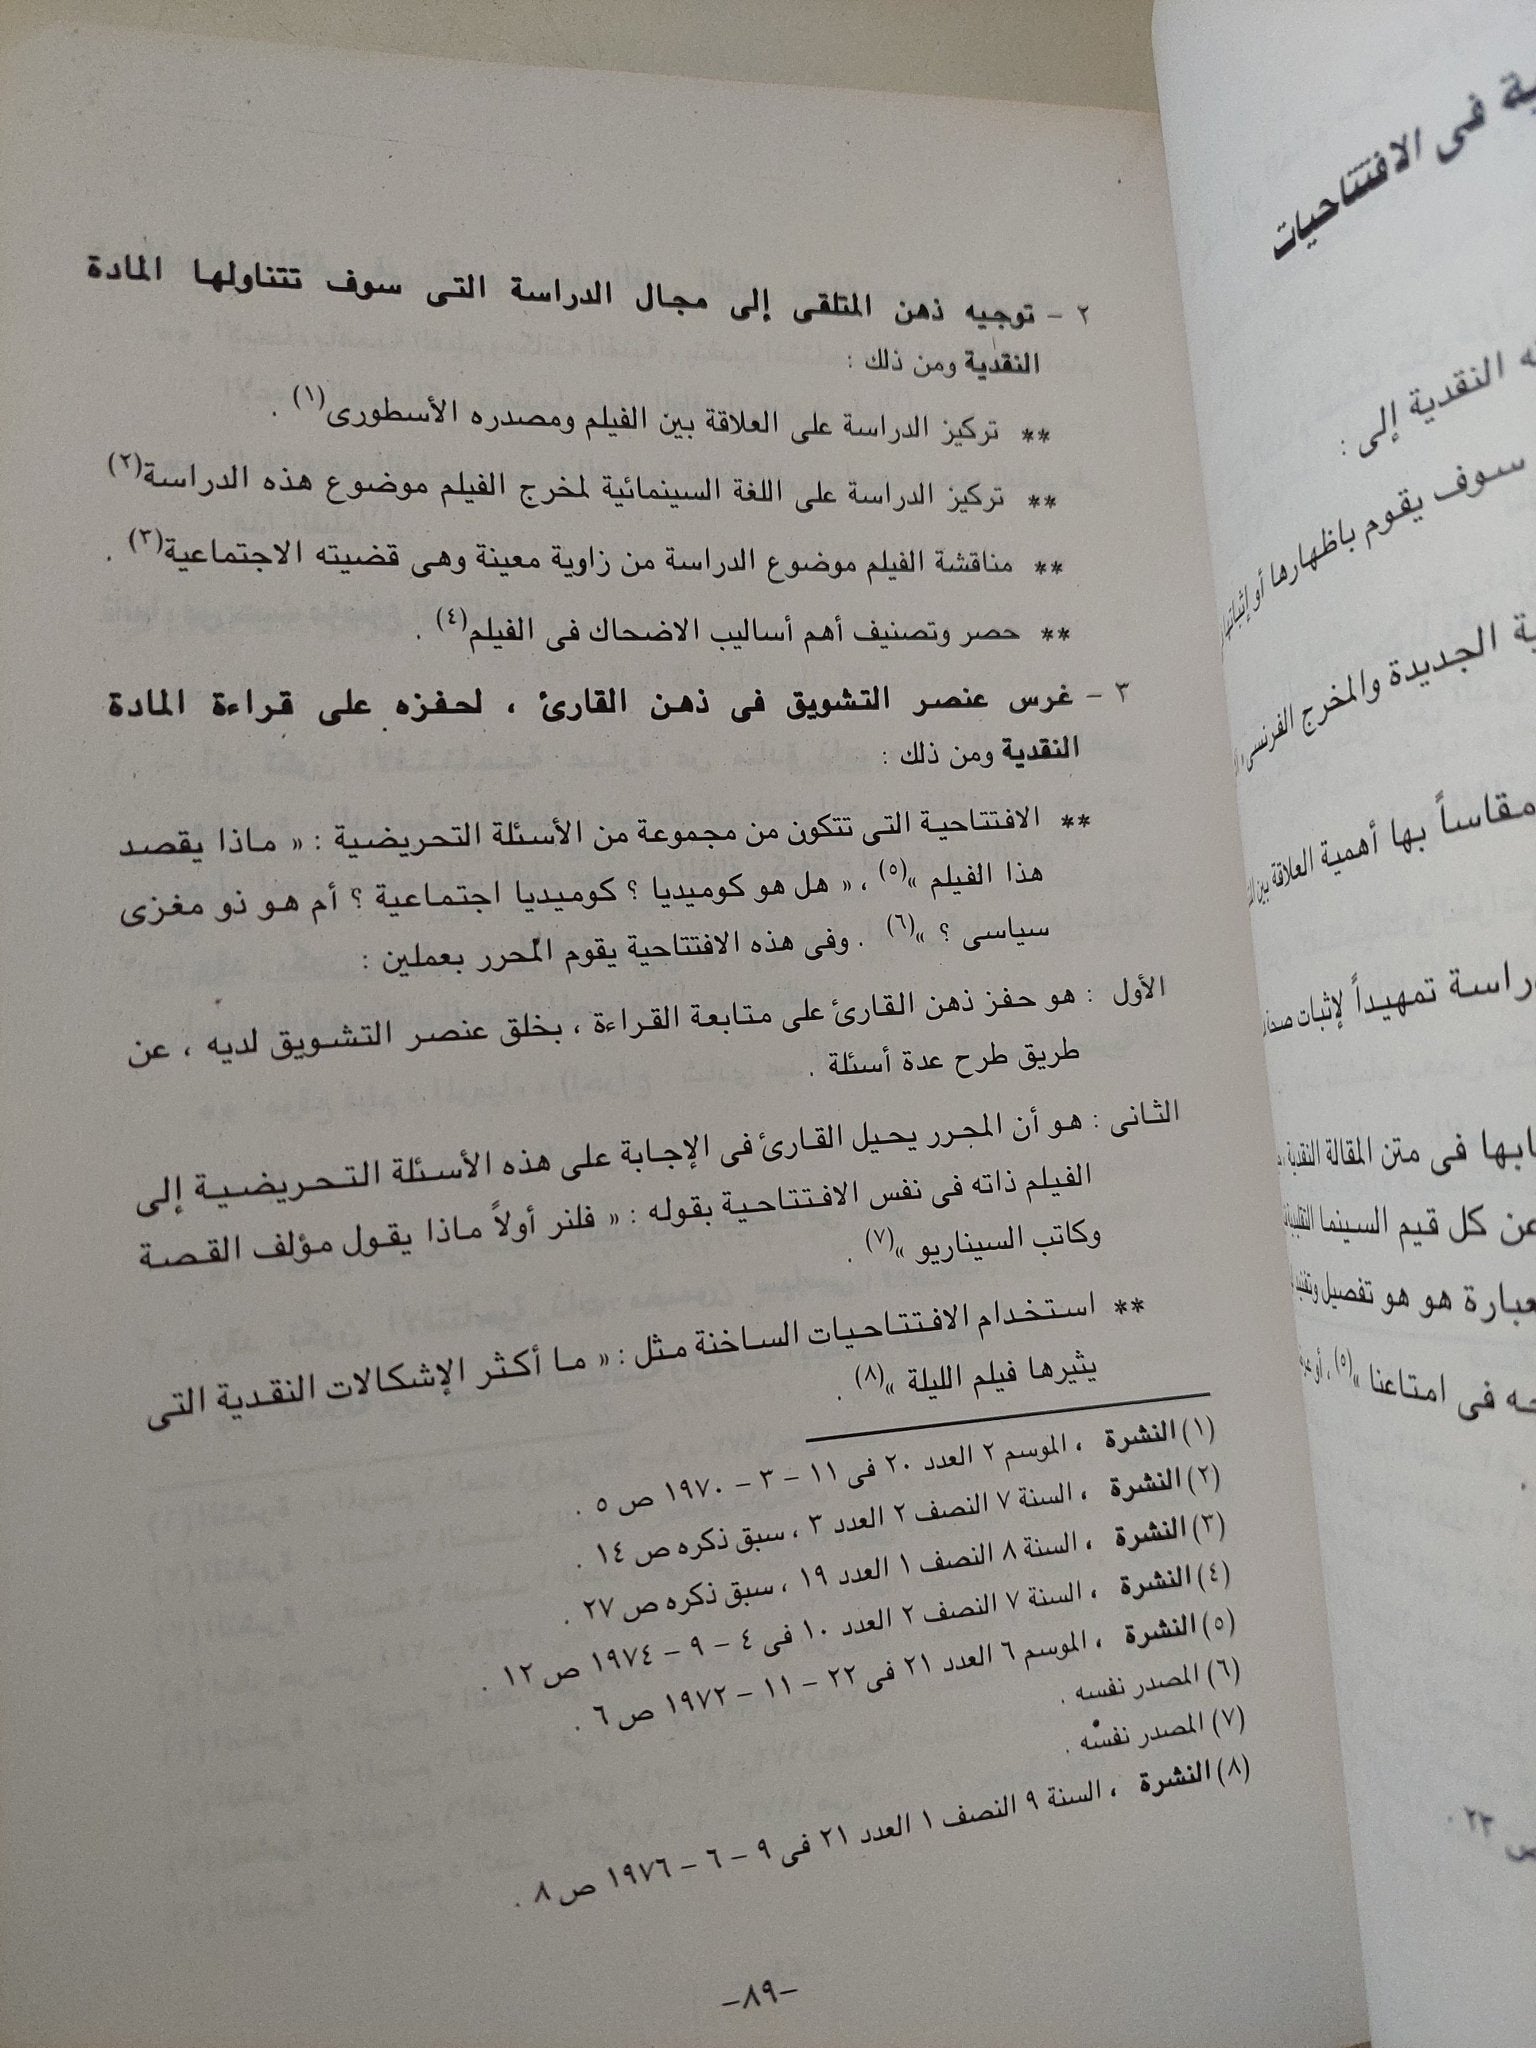 ٢ – توجيه ذهن المتلقى إلى مجال الدراسة التى سوف تتناولها المادة
النقدية ومن ذلك :
** تركيز الدراسة على العلاقة بين الفيلم ومصدره الأسطورى(١) .
** تركيز الدراسة على اللغة السينمائية لمخرج الفيلم موضوع هذه الدراسة(٢)
** مناقشة الفيلم موضوع الدراسة من زاوية معينة وهى قضيته الاجتماعية(٣) .
** حصر وتصنيف أهم أساليب الاضحاك فى الفيلم(٤) .
٣ – غرس عنصر التشويق فى ذهن القارئ ، لحفزه على قراءة المادة
النقدية ومن ذلك :
** الافتتاحية التى تتكون من مجموعة من الأسئلة التحريضية : « ماذا يقصد
هذا الفيلم »(٥) ، « هل هو كوميديا ؟ كوميديا اجتماعية ؟ أم هو ذو مغزى
سياسى ؟ »(٦) . وفى هذه الافتتاحية يقوم المحرر بعملين :
الأول : هو حفز ذهن القارئ على متابعة القراءة ، بخلق عنصر التشويق لديه ، عن
طريق طرح عدة أسئلة .
الثانى : هو أن المحرر يحيل القارئ فى الإجابة على هذه الأسئلة التحريضية إلى
الفيلم ذاته فى نفس الافتتاحية بقوله : « فلنر أولاً ماذا يقول مؤلف القصة
وكاتب السيناريو »(٧) .
** استخدام الافتتاحيات الساخنة مثل : « ما أكثر الإشكالات النقدية التى
يثيرها فيلم الليلة »(٨) .
(١) النشرة ، الموسم ٢ العدد ٢٠ فى ١١ – ٣ – ١٩٧٠ ص ٥ .
(٢) النشرة ، السنة ٧ النصف ٢ العدد ٣ ، سبق ذكره ص ١٤ .
(٣) النشرة ، السنة ٨ النصف ١ العدد ١٩ ، سبق ذكره ص ٢٧ .
(٤) النشرة ، السنة ٧ النصف ٢ العدد ١٠ فى ٤ – ٩ – ١٩٧٤ ص ١٢ .
(٥) النشرة ، الموسم ٦ العدد ٢١ فى ٢٢ – ١١ – ١٩٧٢ ص ٦ .
(٦) المصدر نفسه .
(٧) المصدر نفسه .
(٨) النشرة ، السنة ٩ النصف ١ العدد ٢١ فى ٩ – ٦ – ١٩٧٦ ص ٨ .
–٨٩–
فى الافتتاحيات
النقدية إلى :
سوف يقوم باظهارها أو إثباتها
الجديدة والمخرج الفرنسى
مقاساً بها أهمية العلاقة بين
تمهيداً لإثبات
فى متن المقالة النقدية
عن كل قيم السينما
هو هو تفصيل وتفنيد
فى امتاعنا »(٥) ، أو